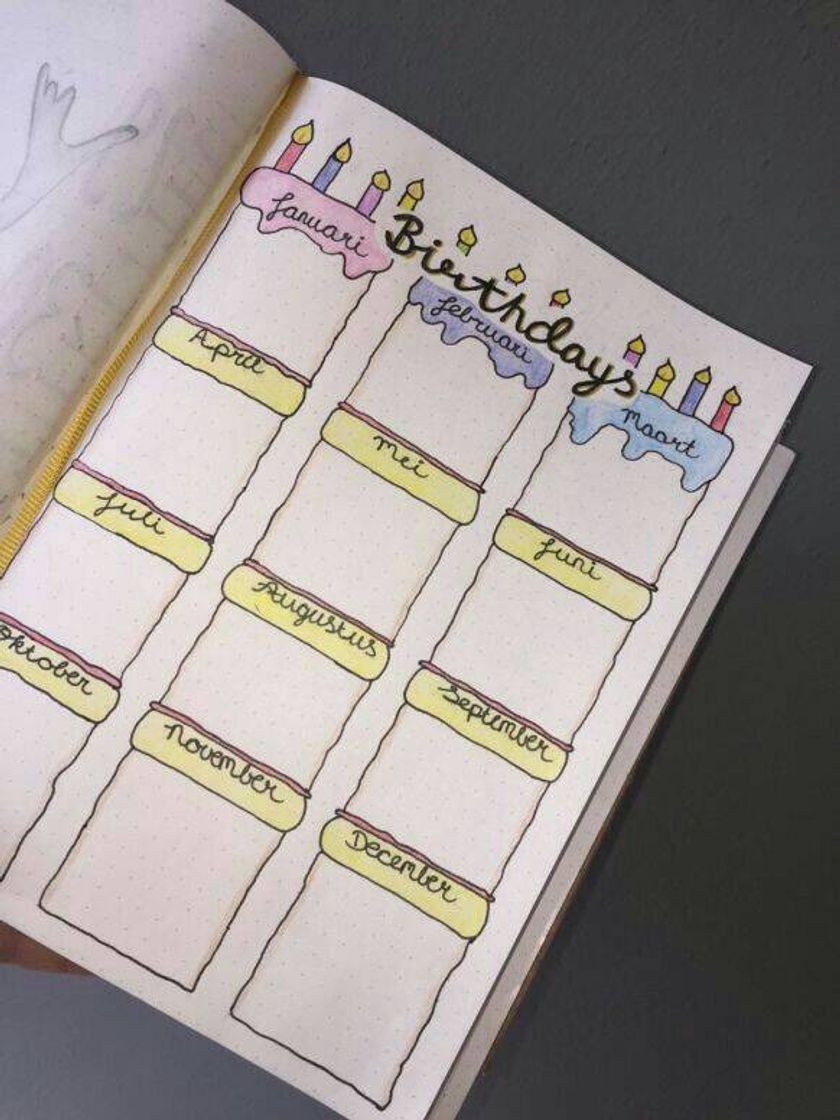 Birthdays
Januari
februari
Maart
April
Mei
Juni
Juli
Augustus
September
Oktober
November
December